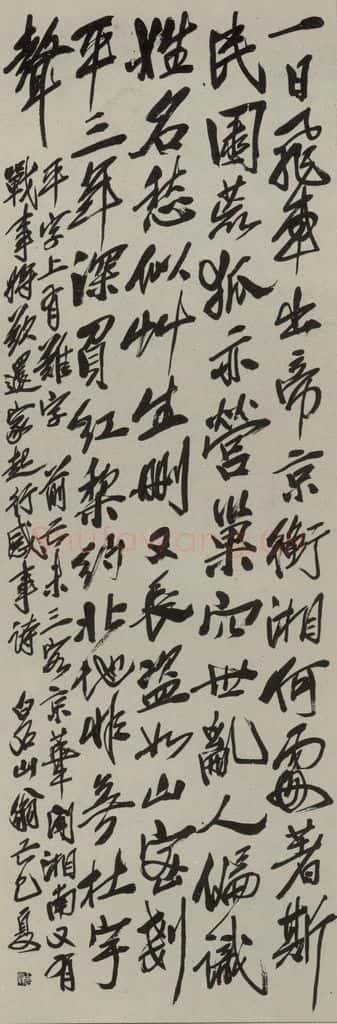 一日飛車出帝京衡湘何處著斯
民園荒狐亦營巢穴世亂人偏識
姓名愁似艸生刪又長盜如山密剗
平三年深負紅棃約北地非無杜宇
聲
平字上有難字 前 三客京華聞湘南又有
戰事將欲還家起行感事詩 白石山翁 巳夏